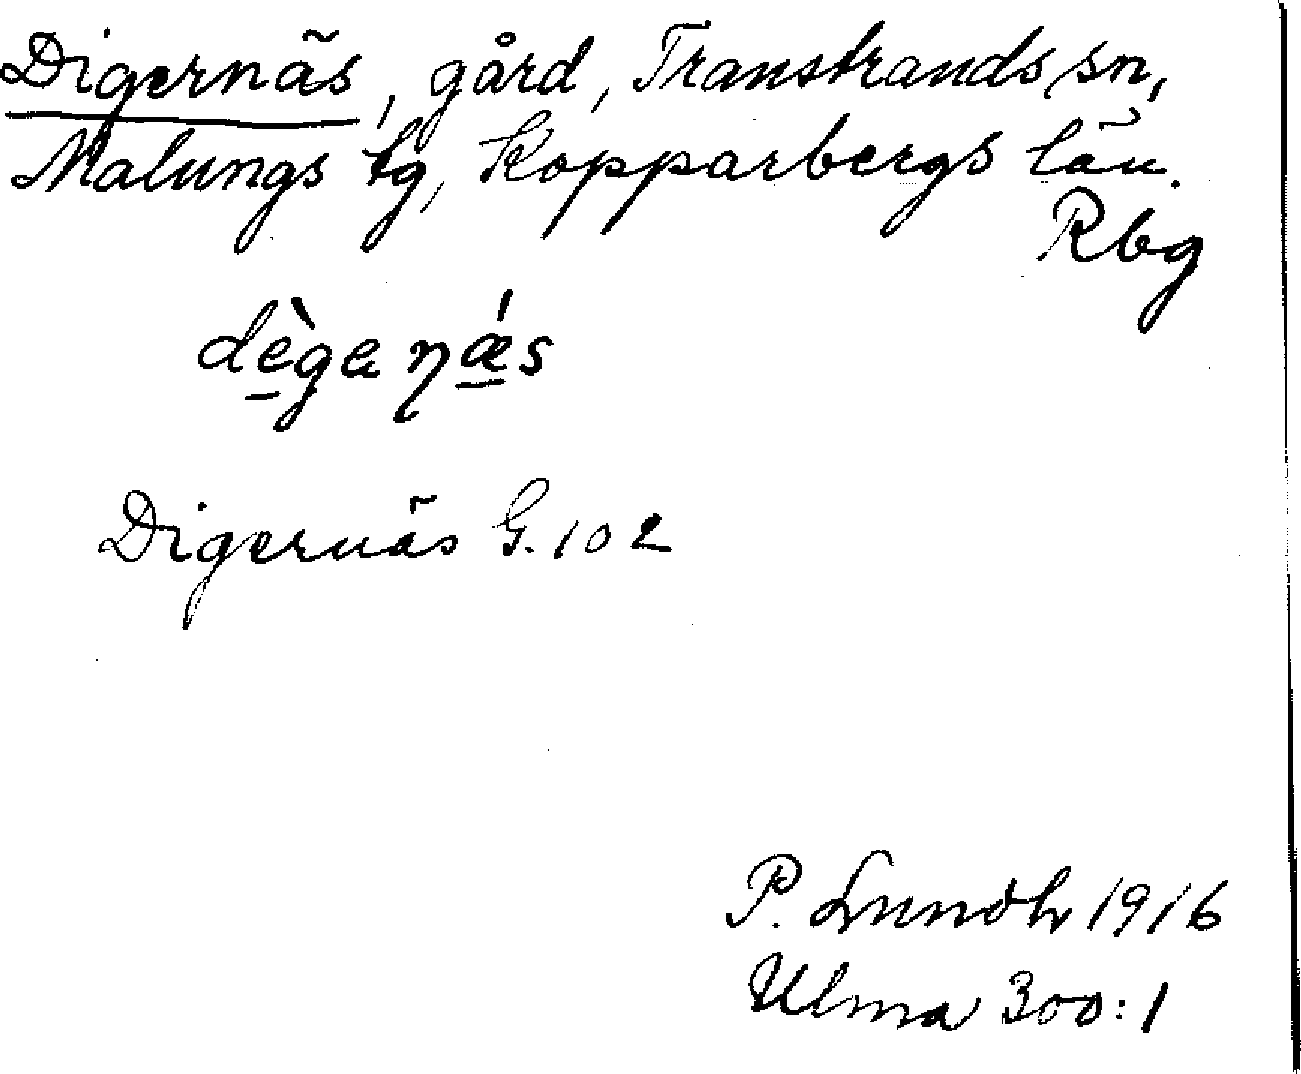 Digernäs, gård, Transtrands sn,
Malungs tg, Kopparbergs län.
Rbg
dègaɳǽs
Digernäs G. 102
P. Lundh 1916
Ulma 300:1